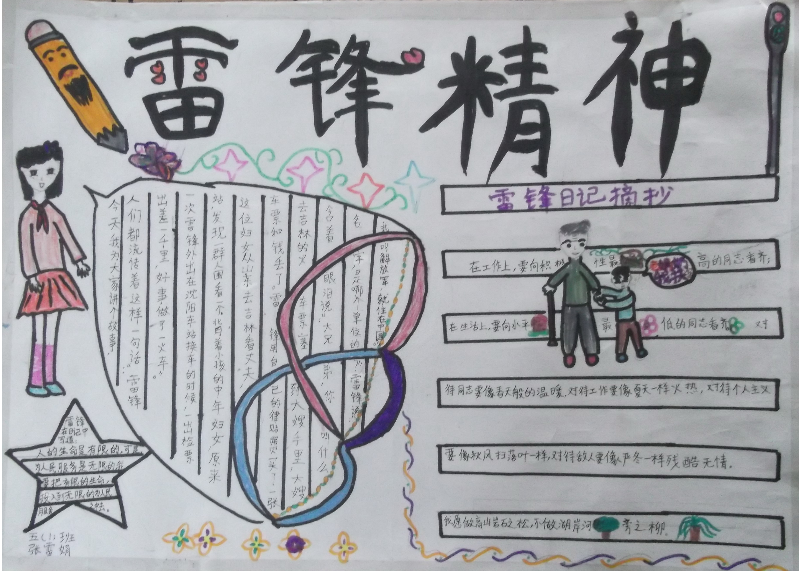 雷锋精神
今天我为大家讲个故事,
人们都流传着这样一句话:"雷锋
出差一千里 好事做了一火车"
一次雷锋外出在沈阳车站换车的时候,一出检票
站发现一群人围看一个背着小孩的中年妇女原来
这位妇女从山东去吉林看丈夫
车票和钱丢了。雷 用自己的津贴费买了一张
去吉林的火车票塞到大嫂手里,大嫂
含着眼泪说:"大兄弟,你叫什么
名字,是哪个单位的 雷锋说
我叫解放军 就住在中国
雷锋
在日记中
写道:
人的生命是有限的,可是
为人民服务是无限的
要把有限的生命,
投入到无限的为人民
服务之
五(1)班
张雪娟
雷锋日记摘抄
在工作上,要向积极性最高的同志看齐;
在生活上,要向水平最低的同志看齐 对
待同志要像春天般的温暖,对待工作要像夏天一样火热,对待个人主义
要像秋风扫落叶一样,对待敌人要像严冬一样残酷无情。
我愿做高山岩石之松,不做湖岸河旁之柳